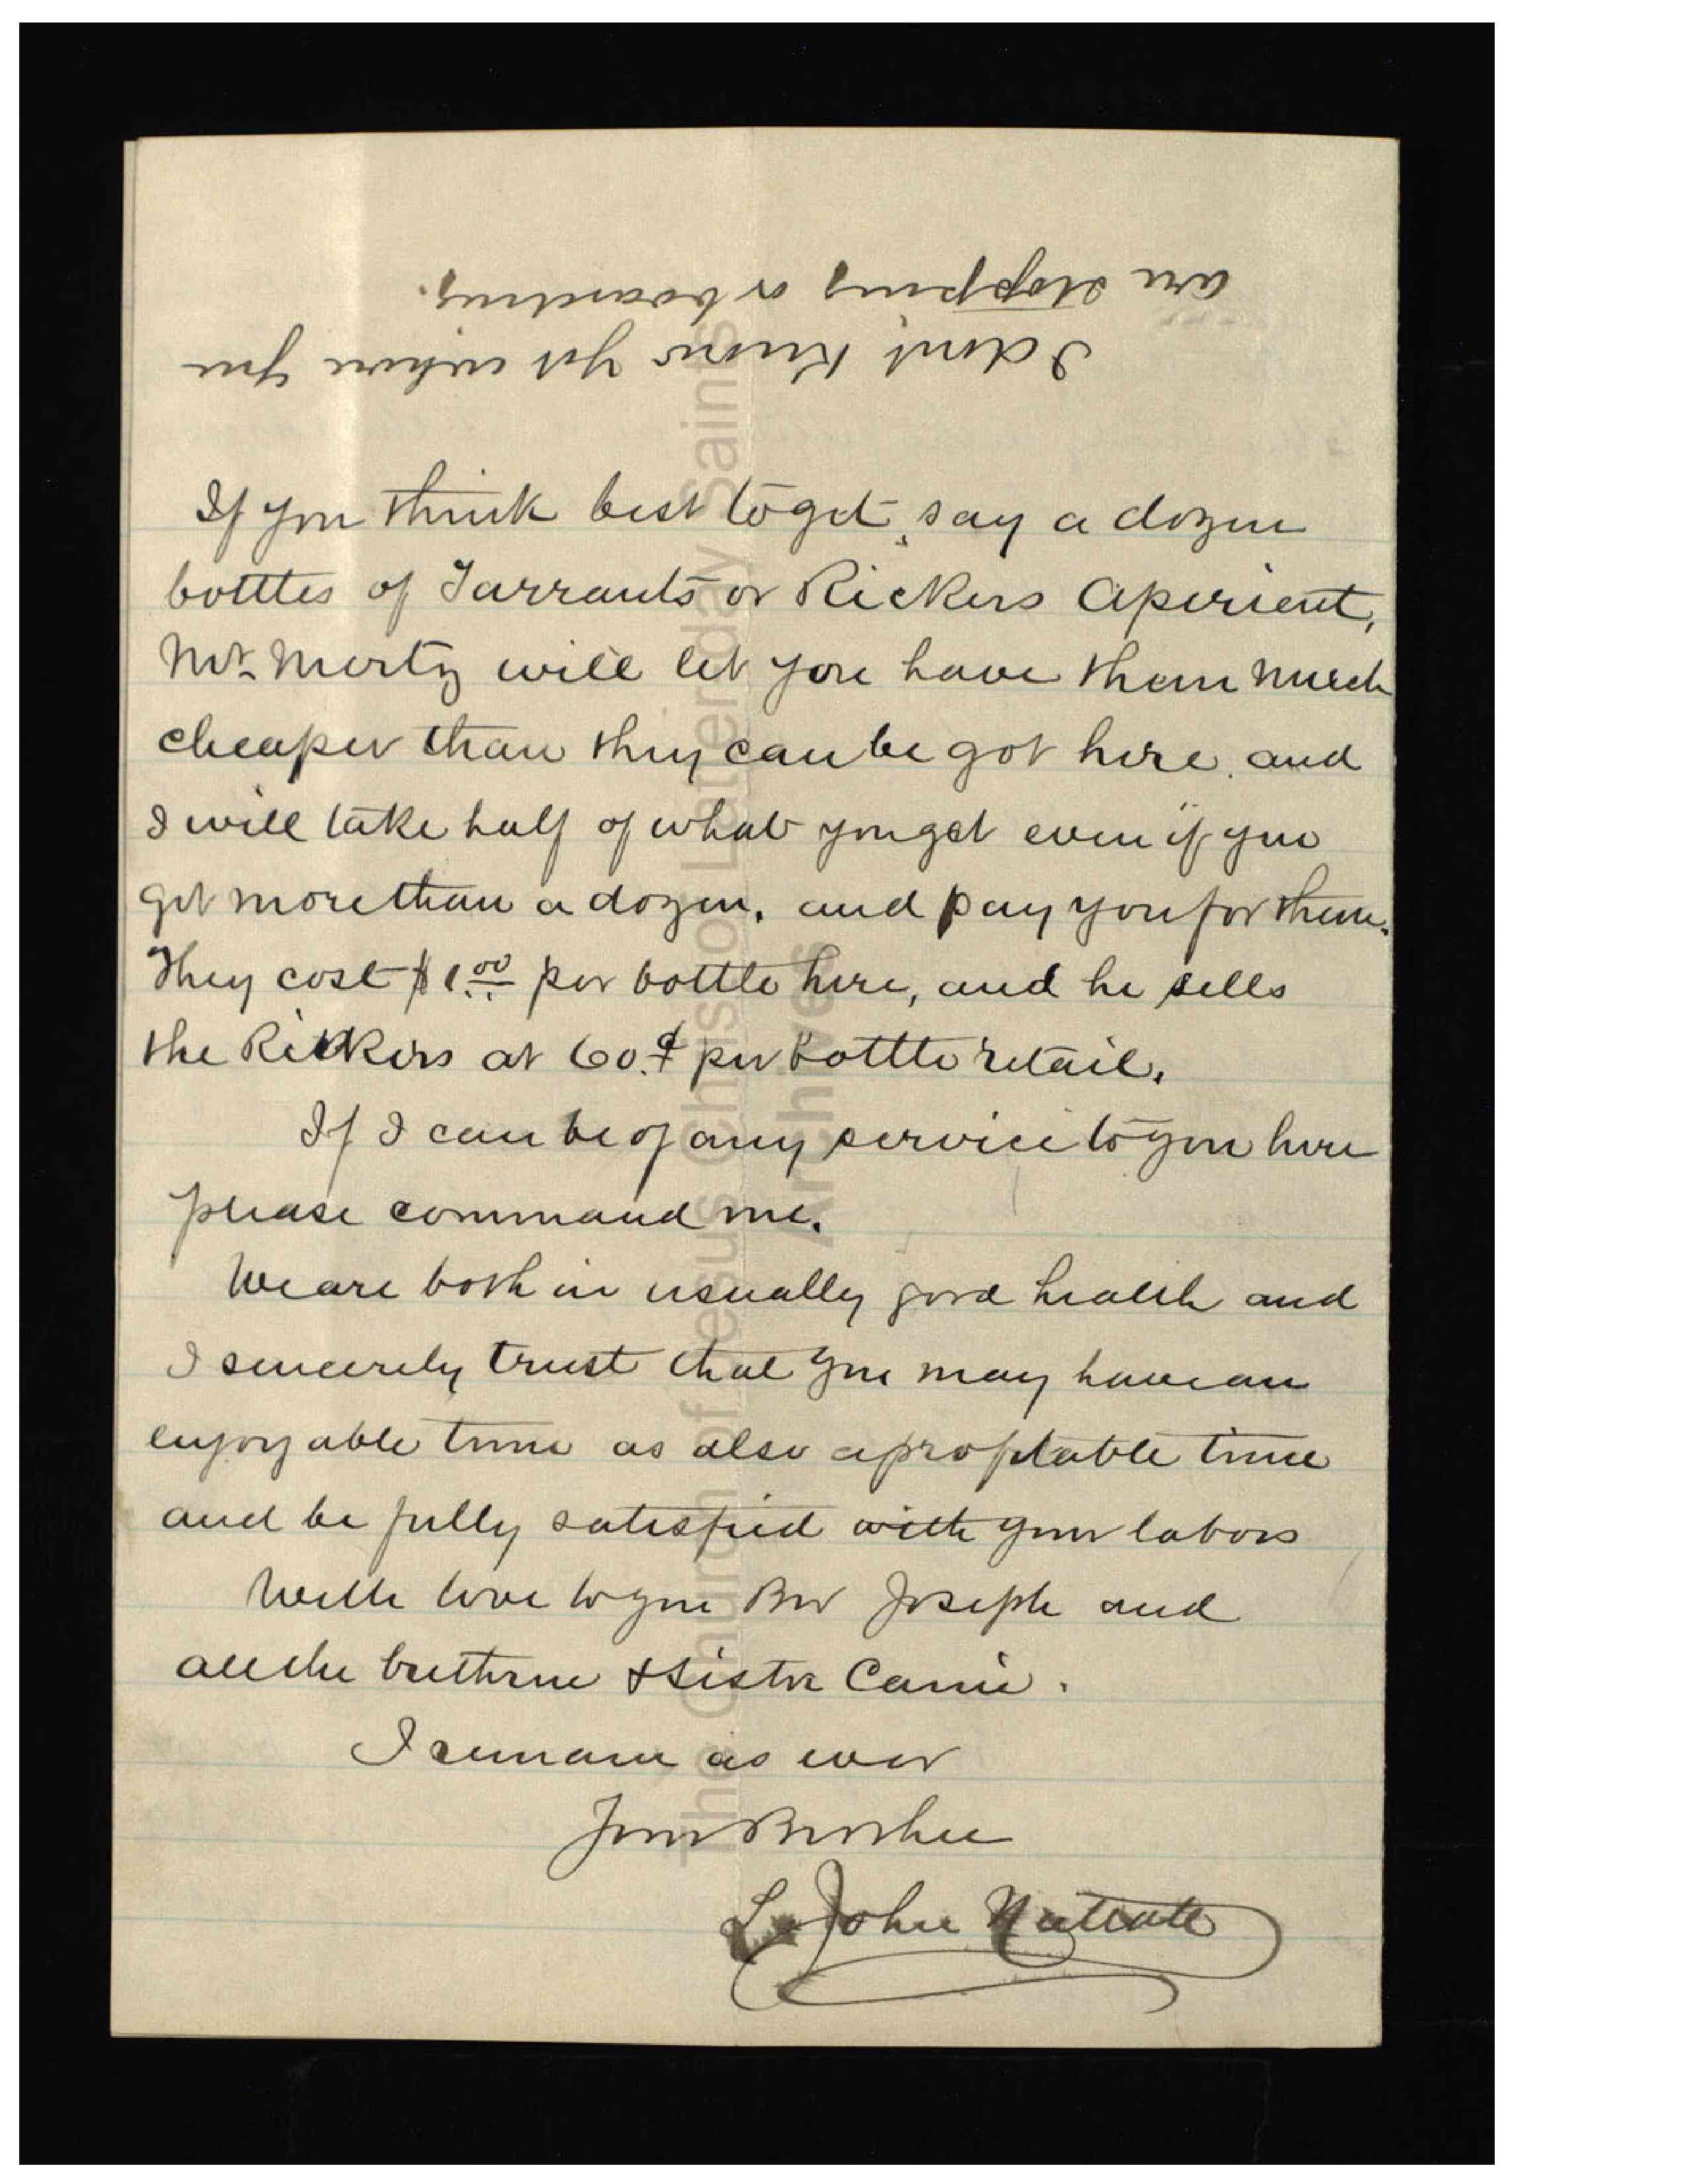 I dont know yet where you
are stopping or boarding.
If you think best to get, say a dozen
botttles of Tarrants or Rickers Aperient,
Mr. Mertz will let you have them much
cheaper than they can be got here, and
I will take half of what you get even if you
get more than a dozen, and pay you for them.
They cost $1.00 per bottle here, and he sells
the Rickers at 60.¢ per bottle retail.
If I can be of any service to you here
please command me.
We are both in usually good health and
I sincerely trust that you may have an
enjoyable time as also a profitable time
and be fully satisfied with your labors
With love to you Bro Joseph and
all the brethren & Sister
I remain as ever
Your Brother
L John Nuttall
The Church of Jesus Christ of Latter-day Saints
Archives